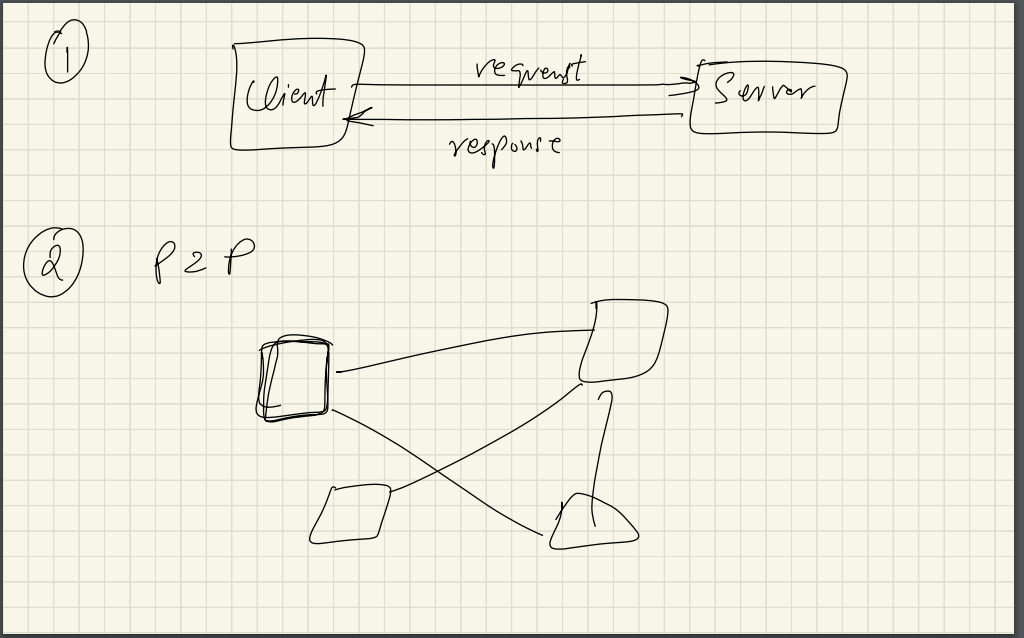 1
Client
request
Server
response
2
P2P